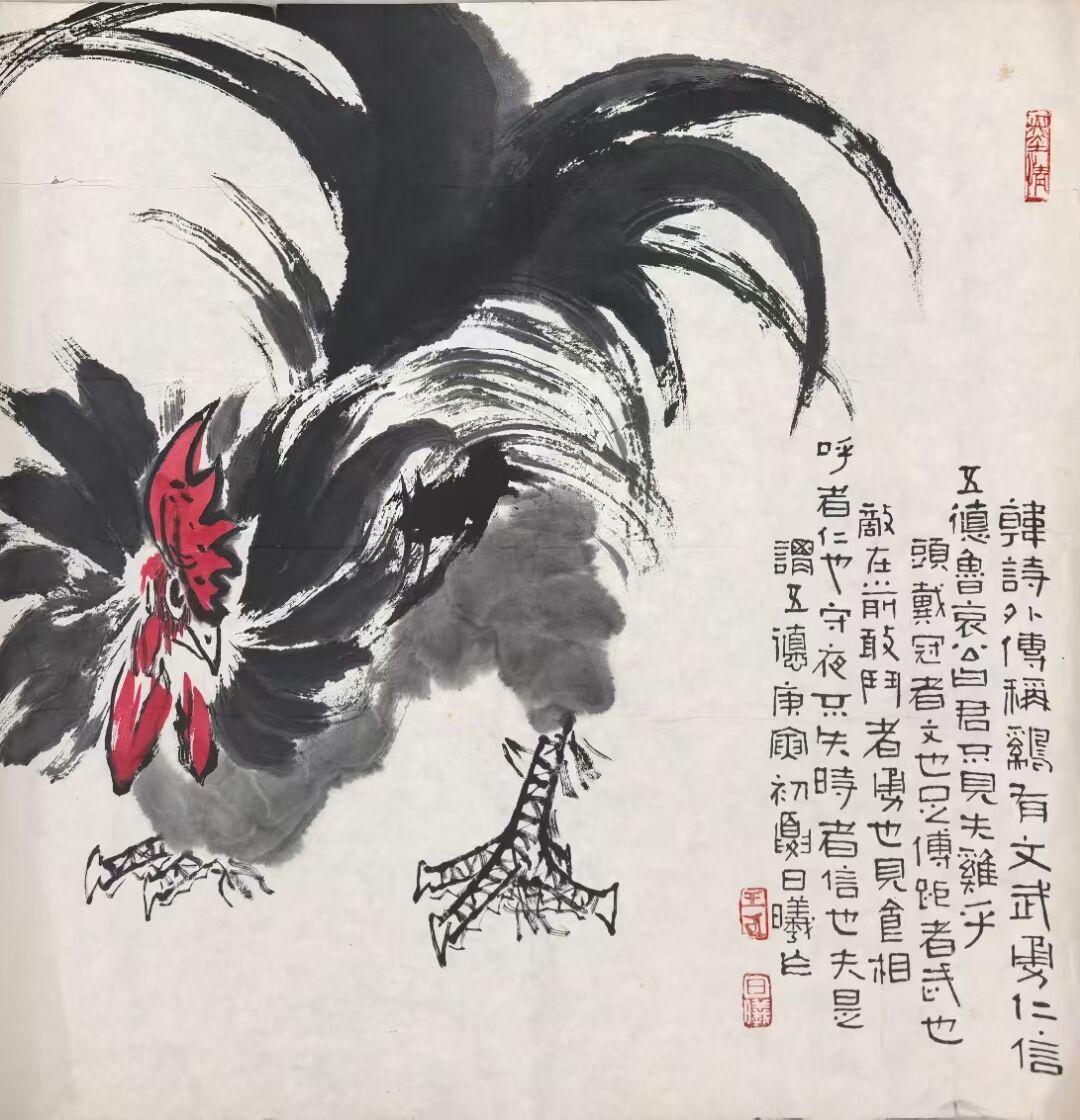 韓詩外傳稱鷄有文武勇仁信
五德魯哀公曰君不見夫雞乎
頭戴冠者文也足傅距者武也
敵在前敢鬥者勇也見食相
呼者仁也守夜不失時者信也夫是
謂五德庚寅初夏日曦